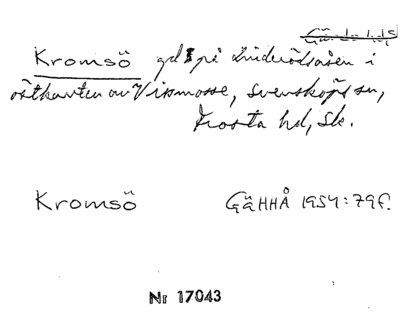 Kromsö gd på Linderödsåsen i
östkanten av Vismosse, Svensköps sn,
Frosta hd, Sk.
Kromsö GäHHÅ 1954:79f.
Nr 17043